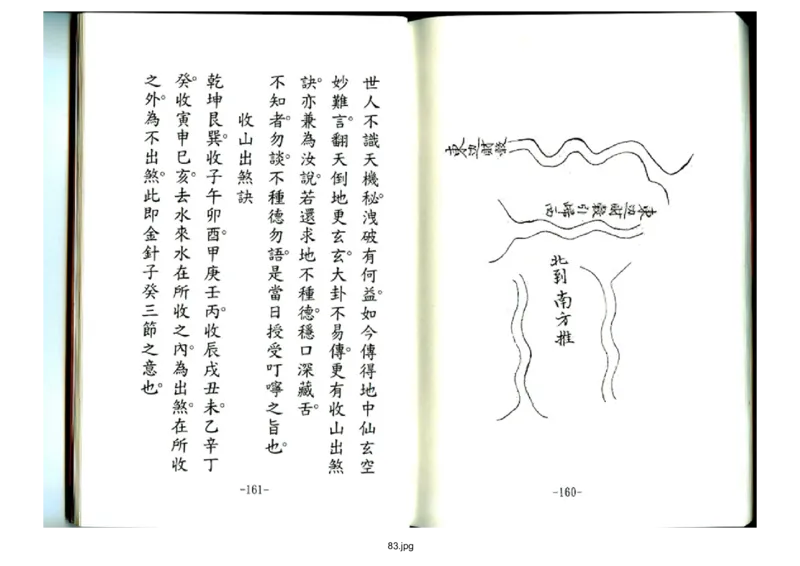 東边財穀
東边財穀引歸西
北到南方推
-160-
世人不識天機秘。洩破有何益。如今傳得地中仙玄空
妙難言。翻天倒地更玄玄。大卦不易傳。更有收山出煞
訣。亦兼為汝說。若還求地不種德。穩口深藏舌。
不知者。勿談。不種德勿語。是當日授受叮嚀之旨也。
收山出煞訣
乾坤艮巽。收子午卯酉。甲庚壬丙。收辰戌丑未。乙辛丁
癸。收寅申巳亥。去水來水在所收之內。為出煞。在所收
之外。為不出煞。此即金針子癸三節之意也。
-161-
83.jpg